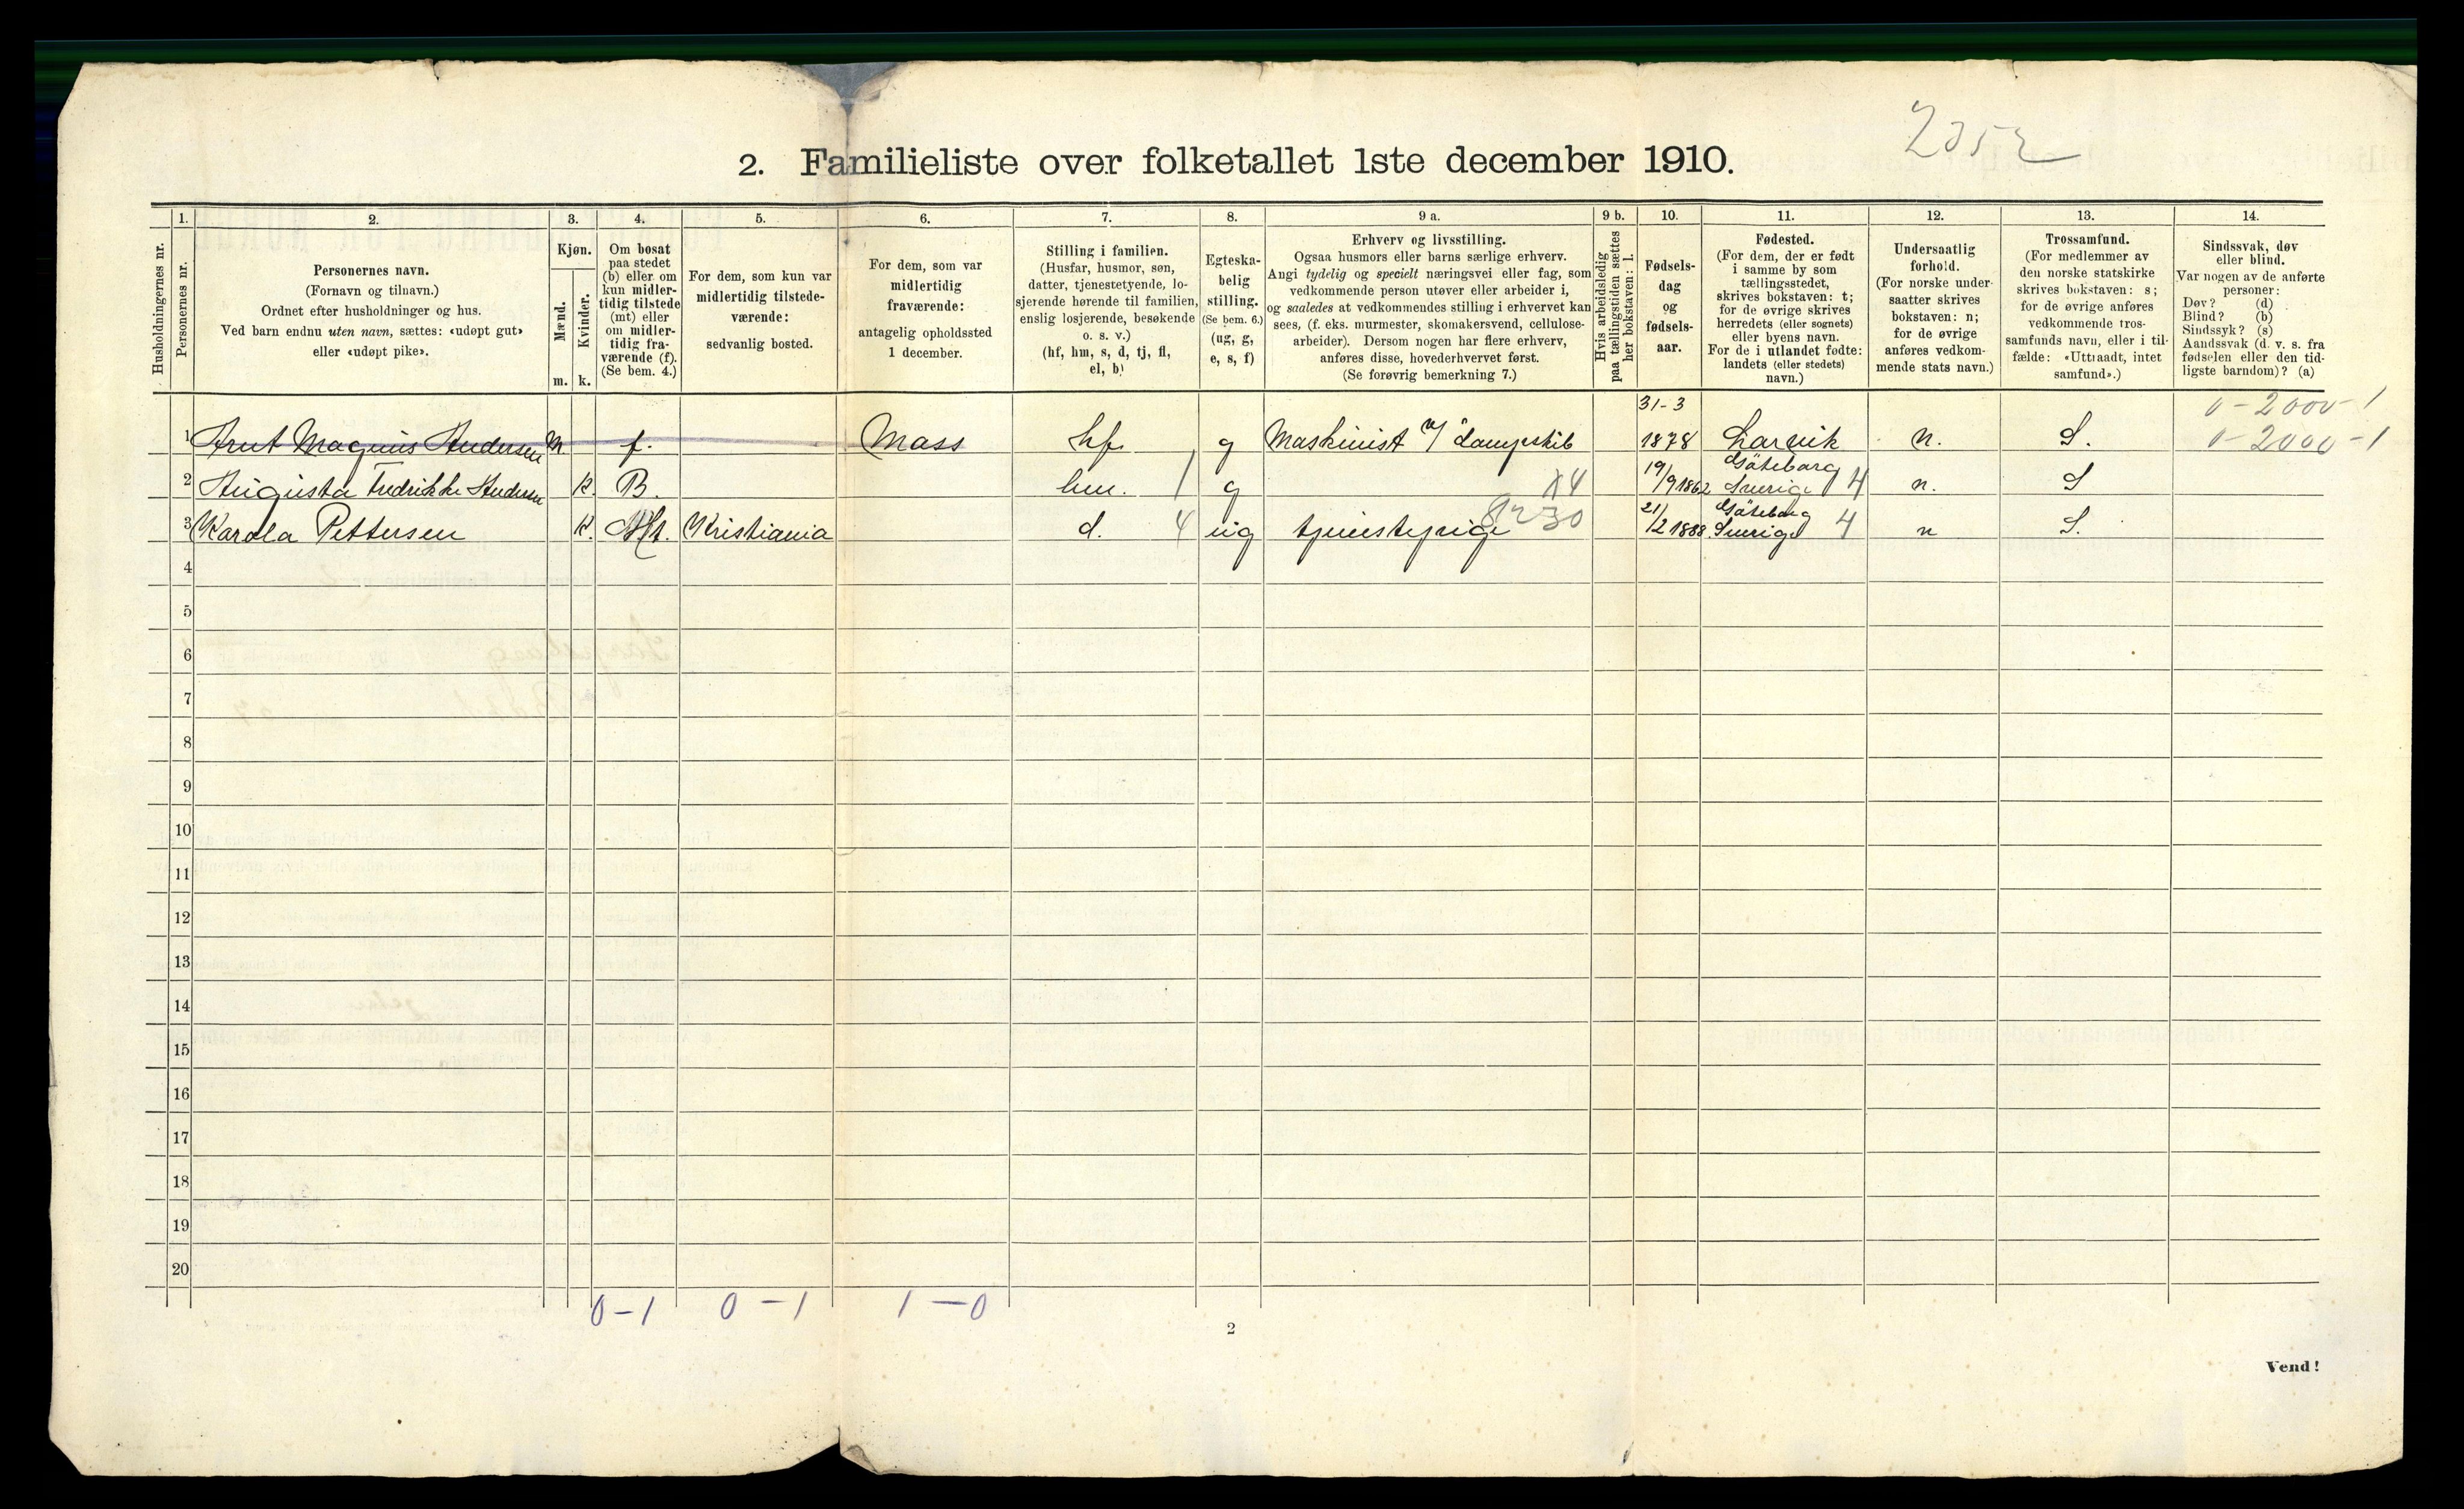 2. Familieliste over folketallet 1ste december 1910.
1. 2. 3. 4. 5. 6. 7. 8. 9 a. 9 b. 10. 11. 12. 13. 14.
Husholdningernes nr.
Personernes nr.
Personernes navn.
(Fornavn og tilnavn.)
Ordnet efter husholdninger og hus.
Ved barn endnu uten navn, sættes: «udøpt gut»
eller «udøpt pike».
Kjøn.
Mænd.
Kvinder.
m. k.
Om bosat
paa stedet
(b) eller om
kun midler-
tidig tilstede
(mt) eller
om midler-
tidig fra-
værende (f).
(Se bem. 4.)
For dem, som kun var
midlertidig tilstede-
værende:
sedvanlig bosted.
For dem, som var
midlertidig
fraværende:
antagelig opholdssted
1 december.
Stilling i familien.
(Husfar, husmor, søn,
datter, tjenestetyende, lo-
sjerende hørende til familien,
enslig losjerende, besøkende
o. s. v.)
(hf, hm, s, d, tj, fl,
el, b)
Egteska-
belig
stilling.
(Se bem. 6.)
(ug, g,
e, s, f)
Erhverv og livsstilling.
Ogsaa husmors eller barns særlige erhverv.
Angi tydelig og specielt næringsvei eller fag, som
vedkommende person utøver eller arbeider i,
og saaledes at vedkommendes stilling i erhvervet kan
sees, (f. eks. murmester, skomakersvend, cellulose-
arbeider). Dersom nogen har flere erhverv,
anføres disse, hovederhvervet først.
(Se forøvrig bemerkning 7.)
Hvis arbeidsledig
paa tællingstiden sættes
her bokstaven: l.
Fødsels-
dag
og
fødsels-
aar.
Fødested.
(For dem, der er født
i samme by som
tællingsstedet,
skrives bokstaven: t;
for de øvrige skrives
herredets (eller sognets)
eller byens navn.
For de i utlandet fødte:
landets (eller stedets)
navn.)
Undersaatlig
forhold.
(For norske under-
saatter skrives
bokstaven: n;
for de øvrige
anføres vedkom-
mende stats navn.)
Trossamfund.
(For medlemmer av
den norske statskirke
skrives bokstaven: s;
for de øvrige anføres
vedkommende tros-
samfunds navn, eller i til-
fælde: «Uttraadt, intet
samfund».)
Sindssvak, døv
eller blind.
Var nogen av de anførte
personer:
Døv? (d)
Blind? (b)
Sindssyk? (s)
Aandssvak (d. v. s. fra
fødselen eller den tid-
ligste barndom)? (a)
0-2000-1
1 Magnus Andersen m. f. Mass hf. g Maskinist dampskib 31-3 1878 Larvik n. S. 0-2000-1
2 Augusta Fredrikke Andersen k. B. hm. 1 g 19/9 1862 Göteborg Sverige 4 n. S
3 Karola Pettersen k. Mt. Kristiania d. 4 ug tjenestepige 21/2 1888 Göteborg Sverige 4 n S.
4
5
6
7
8
9
10
11
12
13
14
15
16
17
18
19
20
0-1 0-1 1-0
2
Vend!